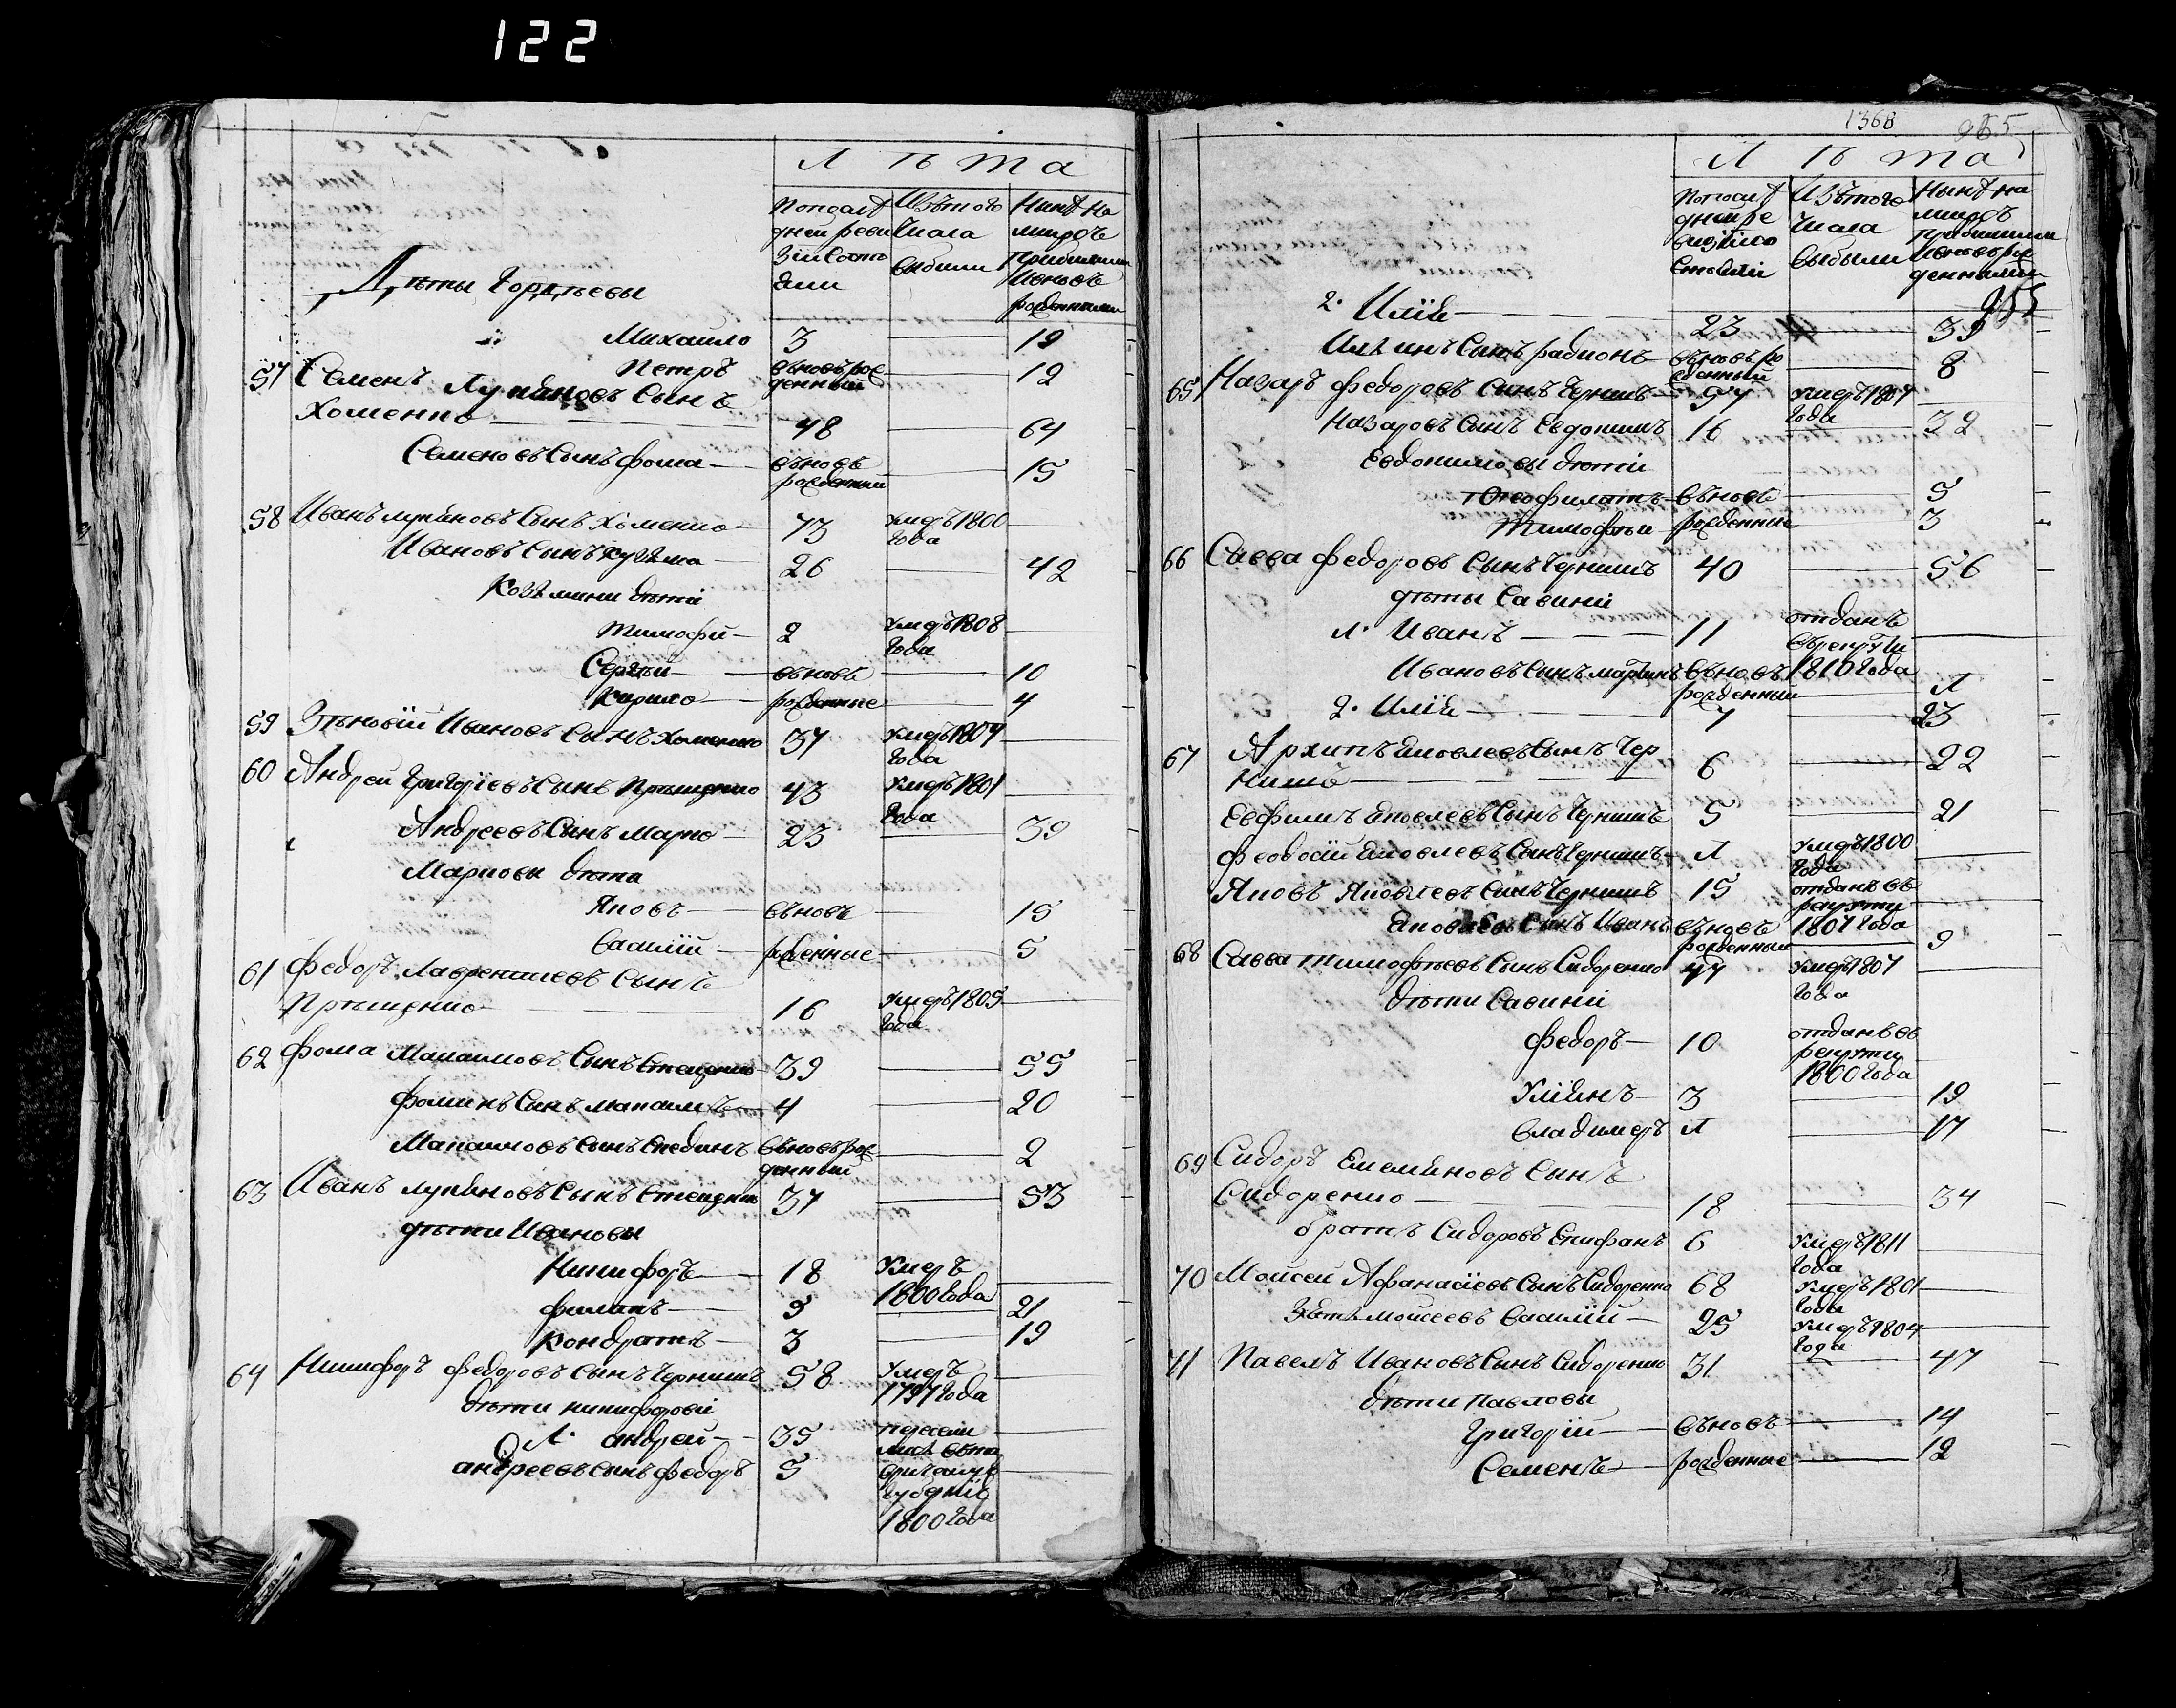 122
Лѣта
Попослѣ
дней реви
зіи состо
яли
Изътого
числа
выбыли
Нынѣ на
лицо съ
прибылыми
Ивновь
рожденными
Дѣты Гордѣевы
Михаило 3 19
Петръ вновь рож
денный 12
57 Семенъ Лукяновъ Сынъ
Хоменко 48 64
Семеновъ Сынъ фома вновь
рожденный 15
58 Иванъ лукяновъ Сынъ Хоменко 73 умеръ 1800
года
Ивановъ Сынъ кузьма 26 42
Козьмини дѣти
Тимофи 2 умеръ 1808
года
Сергѣй вновь 10
Кирило рожденные 4
59 Зѣновій Ивановъ Сынъ Хоменко 37 умеръ 1807
года
60 Андрей Григоріевъ Сынъ 43 умеръ 1801
года
Андреевъ Сынъ марко 23 39
Маркови дѣти
Яковъ вновь 15
Василій рожденные 5
61 федоръ Лаврентиевъ Сынъ
16 умеръ 1805
года
62 фома Макаимовъ Сынъ Стеценко 39 55
фоминъ Сынъ макаимъ 4 20
Макаимовъ Сынъ вновь рож
денный 2
63 Иванъ лукяновъ Сынъ Стеценко 37 53
дѣти Ивановы
Никифоръ 18 умеръ
1800 года
филипъ 5 21
Кондратъ 3 19
64 Никифоръ федоровъ Сынъ Чернишъ 58 умеръ
1797 года
дѣти никифорові
1. андрей 35 пересели
андреевъ сынъ федоръ 5
губерніе
1800 года
1368
955
Лѣта
Попослѣ
дней ре
визіи со
стояли
Изътого
числа
выбыли
Нынѣ на
лицо съ
прибылыми
Ивновь рож
денными
955
2. Илія 23 39
Ильинъ Сынъ радионъ вновь ро
жденный 8
65 Назаръ федоровъ Сынъ Чернишъ 57 умеръ 1807
года
Назаровъ Сынъ Евдокимъ 16 32
Евдокимовы дѣти
Феофилатъ вновь 5
Тимофѣй рожденные 3
66 Савва федоровъ Сынъ Чернишъ 40 56
дѣты Савині
1. Иванъ 11 отданъ
врекруты
1810 года
Ивановъ Сынъ мартинъ вновь
рожденный 1
2. Илія 7 23
67 Архипъ Яковлевъ Сынъ Чер
нишъ 6 22
Евфимъ Яковлевъ Сынъ Чернишъ 5 21
Феодосій Яковлевъ Сынъ Чернишъ 1 умеръ 1800
года
Яковъ Яковлевъ Сынъ Чернишъ 15 отданъ въ
рекруты
1807 года
Яковлевъ Сынъ Иванъ вновь
рожденный 9
68 Савва тимофѣевъ Сынъ Сидоренко 47 умеръ 1807
года
дѣти Савині
федоръ 10 отданъ въ
рекруты
1800 года
Уліянъ 3 19
владимеръ 1 17
69 Сидоръ Емелияновъ Сынъ
Сидоренко 18 34
братъ Сидоровъ Епифанъ 6 умеръ 1811
года
70 Моисей Афанасіевъ Сынъ Сидоренко 68 умеръ 1801
года
Зять моисеевъ Василий 25 умеръ 1804
года
71 Павелъ Ивановъ Сынъ Сидоренко 31 47
дѣти павловы
Григорій вновь 14
Семенъ рожденные 12